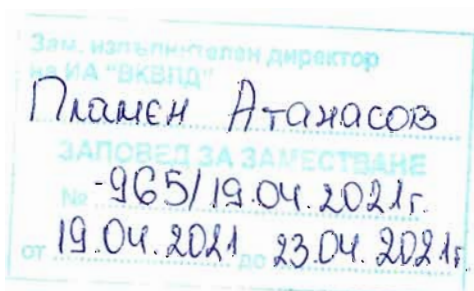 Зам. изпълнителен директор
на ИА "ВКВПД"
Пламен Атанасов
ЗАПОВЕД ЗА ЗАМЕСТВАНЕ
№ -965/19.04.2021г.
от 19.04.2021 до 23.04.2021г.